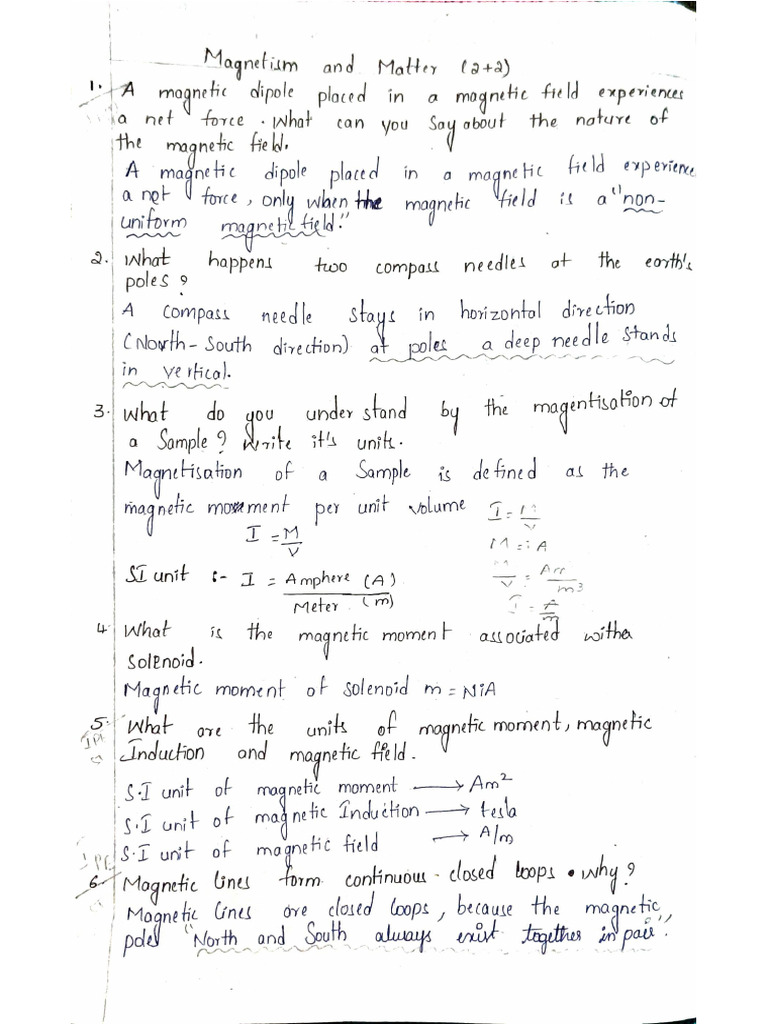 Magnetism and Matter (2+2)
1. A magnetic dipole placed in a magnetic field experiences
a net force. What can you say about the nature of
the magnetic field.
A magnetic dipole placed in a magnetic field experience
a net force, only when the magnetic field is a "non-
uniform magnetic field."
2. What happens two compass needles at the earth's
poles?
A compass needle stays in horizontal direction
(North-South direction) at poles a deep needle stands
in vertical.
3. What do you understand by the magentisation of
a Sample? Write it's units.
Magnetisation of a Sample is defined as the
magnetic movement per unit volume
I = M/V
I = M/V
M = iA
SI unit :- I = Amphere (A) / Meter (m)
M/V = Am²/m³
I = A/m
4. What is the magnetic moment associated with a
Solenoid.
Magnetic moment of solenoid m = NiA
5. What are the units of magnetic moment, magnetic
Induction and magnetic field.
S.I unit of magnetic moment → Am²
S.I unit of magnetic Induction → tesla
S.I unit of magnetic field → A/m
6. Magnetic lines form continuous closed loops. Why?
Magnetic lines are closed loops, because the magnetic
poles "North and South always exist together in pair".